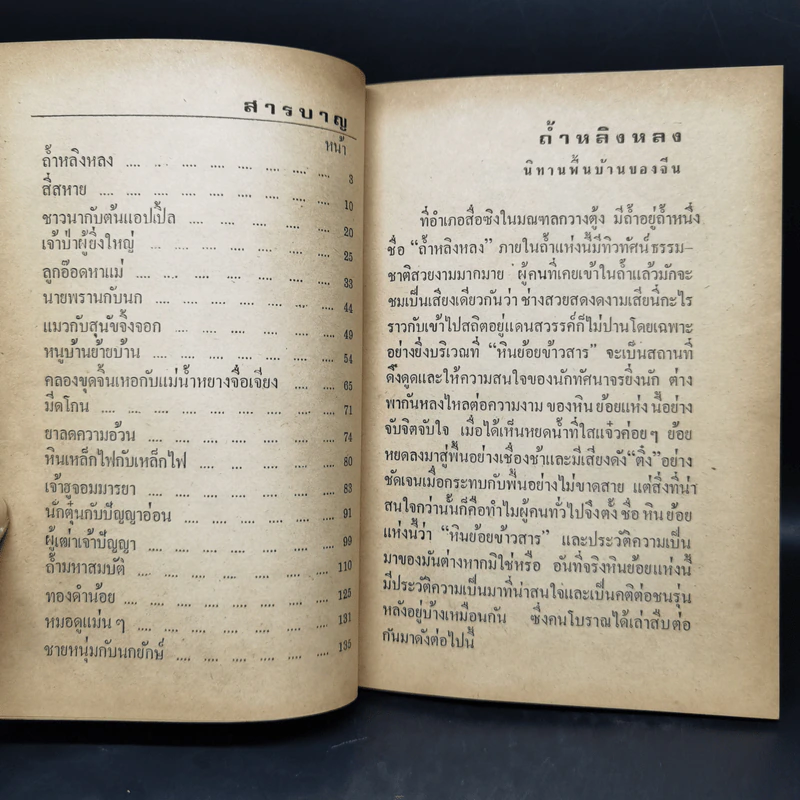 สารบาญ
หน้า
ถ้ำหลิงหลง .... .... .... .... .... .... .... 3
สี่สหาย .... .... .... .... .... .... .... .... 10
ชาวนากับต้นแอปเปิ้ล .... .... .... .... .... 20
เจ้าป่าผู้ยิ่งใหญ่ .... .... .... .... .... .... 25
ลูกอ๊อดหาแม่ .... .... .... .... .... .... .... 33
นายพรานกับนก .... .... .... .... .... .... 44
แมวกับสุนัขจิ้งจอก .... .... .... .... .... 49
หนูบ้านย้ายบ้าน .... .... .... .... .... .... 54
คลองขุดจิ้นเหอกับแม่น้ำหยางจื่อเจียง .... .... 65
มีดโกน .... .... .... .... .... .... .... .... 71
ยาลดความอ้วน .... .... .... .... .... .... 74
หินเหล็กไฟกับเหล็กไฟ .... .... .... .... .... 80
เจ้าฮูจอมมารยา .... .... .... .... .... .... 83
นักตุ๋นกับปัญญาอ่อน .... .... .... .... .... 91
ผู้เฒ่าเจ้าปัญญา .... .... .... .... .... .... 99
ถ้ำมหาสมบัติ .... .... .... .... .... .... 110
ทองดำน้อย .... .... .... .... .... .... .... 125
หมอดูแม่น ๆ .... .... .... .... .... .... 131
ชายหนุ่มกับนกยักษ์ .... .... .... .... .... 135
ถ้ำหลิงหลง
นิทานพื้นบ้านของจีน
ที่อำเภอสื่อซิงในมณฑลกวางตุ้ง มีถ้ำอยู่ถ้ำหนึ่ง
ชื่อ “ถ้ำหลิงหลง” ภายในถ้ำแห่งนี้มีทิวทัศน์ธรรม–
ชาติสวยงามมากมาย ผู้คนที่เคยเข้าในถ้ำแล้วมักจะ
ชมเป็นเสียงเดียวกันว่า ช่างสวยสดงดงามเสียนี่กะไร
ราวกับเข้าไปสถิตอยู่แดนสวรรค์ก็ไม่ปานโดยเฉพาะ
อย่างยิ่งบริเวณที่ “หินย้อยข้าวสาร” จะเป็นสถานที่
ดึงดูดและให้ความสนใจของนักทัศนาจรยิ่งนัก ต่าง
พากันหลงไหลต่อความงาม ของหิน ย้อยแห่ง นี้อย่าง
จับจิตจับใจ เมื่อได้เห็นหยดน้ำที่ใสแจ๋วค่อยๆ ย้อย
หยดลงมาสู่พื้นอย่างเชื่องช้าและมีเสียงดัง“ติ๋ง”อย่าง
ชัดเจนเมื่อกระทบกับพื้นอย่างไม่ขาดสาย แต่สิ่งที่น่า
สนใจกว่านั้นก็คือทำไมผู้คนทั่วไปจึงตั้ง ชื่อ หิน ย้อย
แห่งนี้ว่า “หินย้อยข้าวสาร” และประวัติความเป็น
มาของมันต่างหากมิใช่หรือ อันที่จริงหินย้อยแห่งนี้
มีประวัติความเป็นมาที่น่าสนใจและเป็นคติต่อชนรุ่น
หลังอยู่บ้างเหมือนกัน ซึ่งคนโบราณได้เล่าสืบ ต่อ
กันมาดังต่อไปนี้